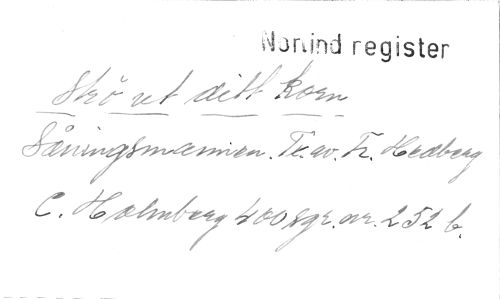 Norlind register
Strö ut ditt korn
Såningsmannen. Tx. av. Fr. Hedberg
C. Holmberg 400 sgr. nr. 252 b.